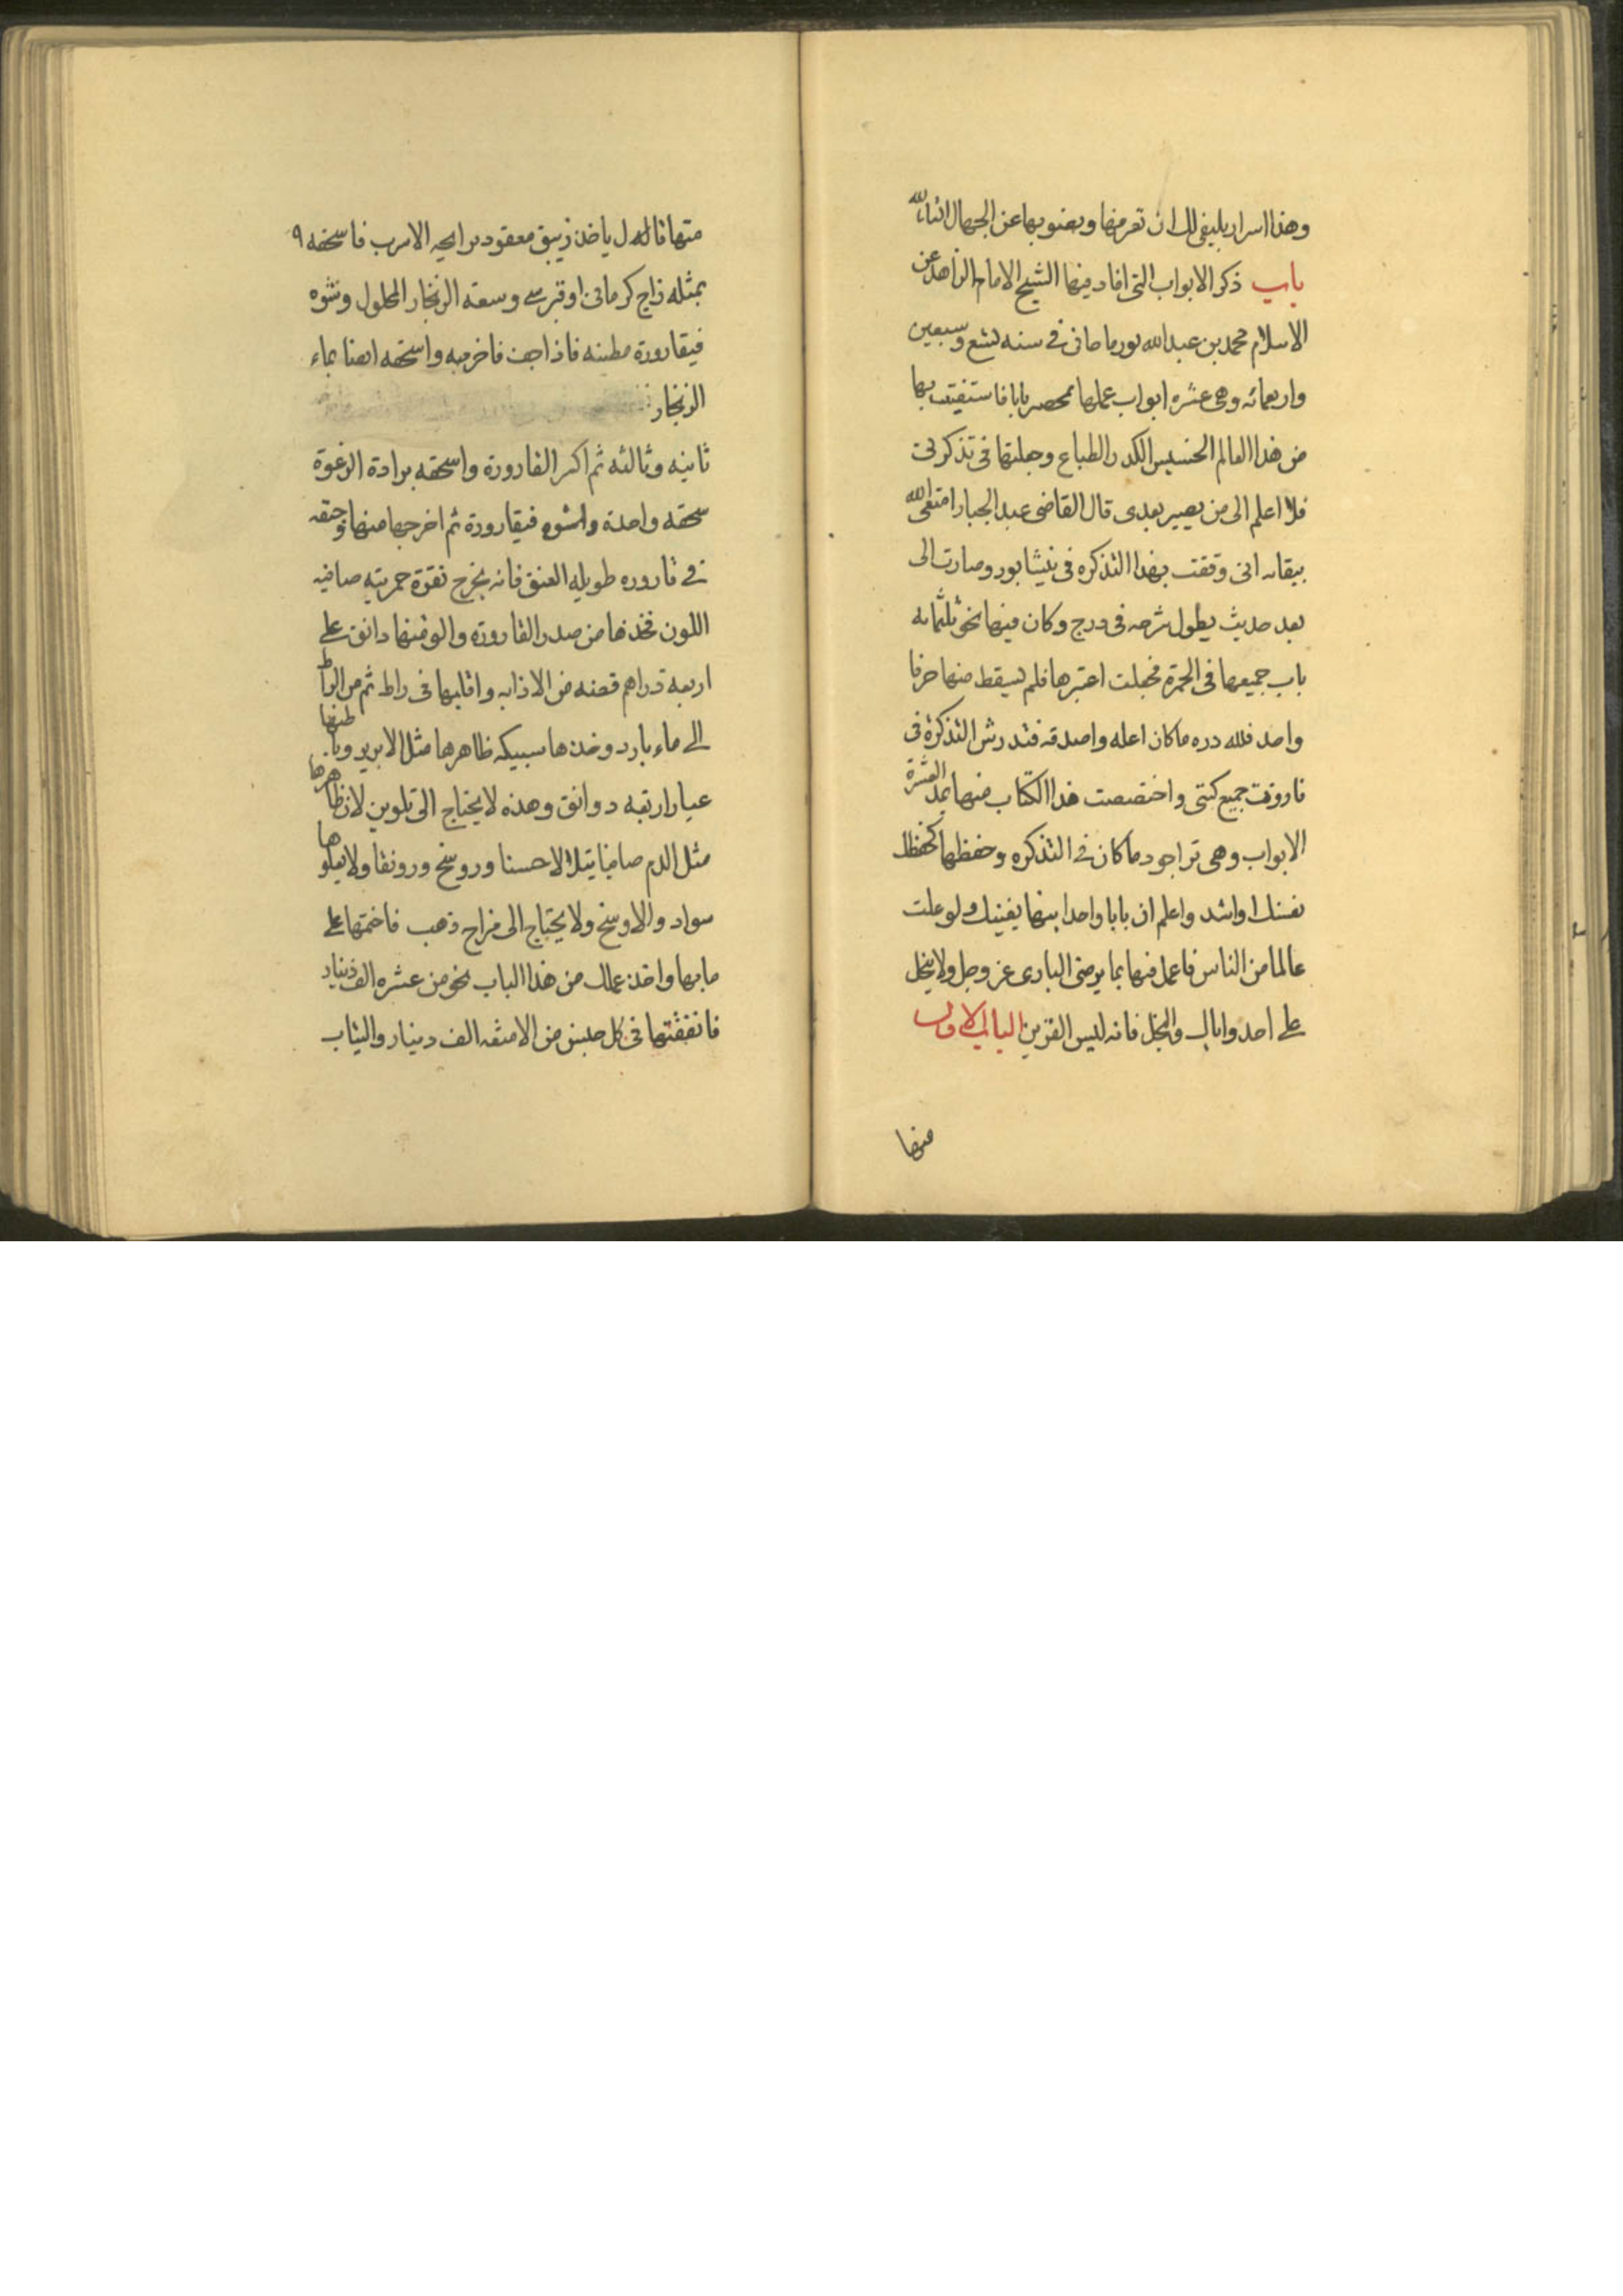 وهذا اسرار يليق لك ان تعرفها وبعنو بها عن الجهال انشاء الله
باب ذكر الابواب التى افاد فيها الشيخ الامام الزاهد عن
الاسلام محمد بن عبد الله نور ماحانى فى سنه تسع وسبعين
واربعمائه وهى عشره ابواب عملها بابا فاستفتيت بها
من هذا العالم الخسيس الكدر الطباع وجعلتها فى تذكرتى
فلا اعلم الى من يصير بعدى قال القاضى عبد الجبار امتعنى الله
ببقائه انى وقفت بهذا التذكره فى نيشابور وصارت الى
بعد حديث يطول شرحه فى درج وكان فيها نحو ثلثمائه
باب جميعها فى الحمرة فجعلت اعتبرها فلم يسقط منها حرفا
واحد فلله دره ماكان اعله واصدقه التذكرة فى
جميع كتبى واختصصت هذا الكتاب منها بهذ العشرة
الابواب وهى ماكان فى التذكره وحفظها كحفظك
نفسك اواشد واعلم ان بابا واحدا منها يغنيك ولو علت
عالما من الناس فاعمل فيها بما يرضى البارى عز وجل ولا يبخل
على احد واياك والبخل فانه ليس القرين الباب الاول
منها
منها قال ياخذ زيبق معقود برايحه الاسرب فاسحقه ٩
بمثله زاج كرمانى او قبرسى وسقه الزنجار المحلول وشوه
فيقارورة مطينه فاذا جف فاخرجه واسحقه ايضا بماء
الزنجار
ثانيه وثالثه ثم اكسر القارورة واسحقه برادة الرغوة
سحقه واحدة واشوه فيقارورة ثم اخرجها منها
فى قاروره طويله العنق فانه يخرج نقرة حمريته صافيه
اللون فخذها من صدر القاروره والو منها دانق على
اربعه دراهم فضه من الاذابه واقلبها فى راط ثم من الراط
الى ماء بارد وخذها سبيكه ظاهرها مثل الابريز وباطنها
عيار اربعه دوانق وهذه لا يحتاج الى تلوين لان ظاهرها
مثل الدم صافيا يتلالا حسنا وروسخ ورونقا ولا يعلوها
سواد والاوسخ ولا يحتاج الى مزاج ذهب فاختمها على
مابها واخذ عملك من هذا الباب نحو من عشره الف دينار
فانفقتها فى كل جنس من الامتعه الف دينار والثياب